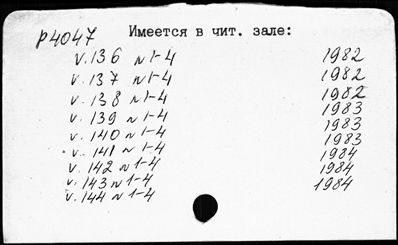 р4047 Имеется в чит. зале:
v. 136 N 1-4 1982
v. 137 N 1-4 1982
v. 138 N 1-4 1982
v. 139 N 1-4 1983
v. 140 N 1-4 1983
v. 141 N 1-4 1983
v. 142 N 1-4 1984
v. 143 N 1-4 1984
v. 144 N 1-4 1984